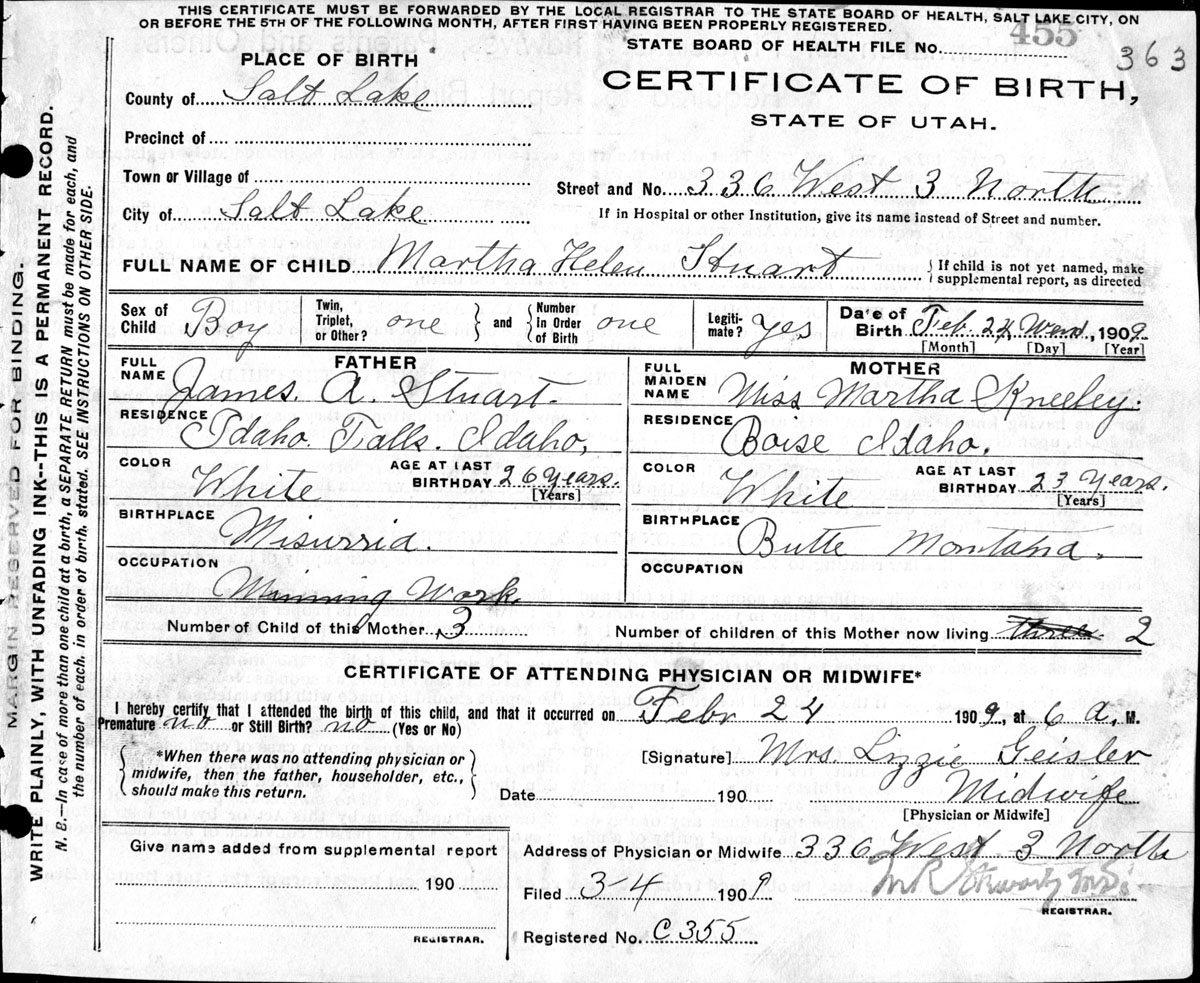 THIS CERTIFICATE MUST BE FORWARDED BY THE LOCAL REGISTRAR TO THE STATE BOARD OF HEALTH, SALT LAKE CITY, ON
OR BEFORE THE 5TH OF THE FOLLOWING MONTH, AFTER FIRST HAVING BEEN PROPERLY REGISTERED.
STATE BOARD OF HEALTH FILE No. 455 363
PLACE OF BIRTH
CERTIFICATE OF BIRTH,
STATE OF UTAH.
County of Salt Lake
Precinct of
Town or Village of
Street and No. 336 West 3 North
City of Salt Lake
If in Hospital or other Institution, give its name instead of Street and number.
FULL NAME OF CHILD Martha Helen Stuart
If child is not yet named, make supplemental report, as directed
Sex of Child Boy
Twin, Triplet, or Other? one
and
Number in Order of Birth one
Legiti-mate? yes
Date of Birth Feb. 24 Wend, 1909.
[Month] [Day] [Year]
FATHER
FULL NAME James. A. Stuart.
RESIDENCE Idaho. Falls. Idaho,
COLOR White
AGE AT LAST BIRTHDAY 26 Years.
[Years]
BIRTHPLACE Misurria.
OCCUPATION Minning Work.
MOTHER
FULL MAIDEN NAME Miss Martha Kneeley.
RESIDENCE Boise Idaho.
COLOR White
AGE AT LAST BIRTHDAY 23 Years.
[Years]
BIRTHPLACE Butte Montana.
OCCUPATION
Number of Child of this Mother 3
Number of children of this Mother now living three 2
CERTIFICATE OF ATTENDING PHYSICIAN OR MIDWIFE*
I hereby certify that I attended the birth of this child, and that it occurred on Febr 24 1909, at 6 a. M.
Premature no or Still Birth? no (Yes or No)
*When there was no attending physician or
midwife, then the father, householder, etc.,
should make this return.
[Signature] Mrs. Lizzie Geisler
Date 190 Midwife
[Physician or Midwife]
Give name added from supplemental report
190
REGISTRAR.
Address of Physician or Midwife 336 West 3 North
Filed 3-4 1909
REGISTRAR.
Registered No. C355
MARGIN RESERVED FOR BINDING.
WRITE PLAINLY, WITH UNFADING INK--THIS IS A PERMANENT RECORD.
N. B.—In case of more than one child at a birth, a SEPARATE RETURN must be made for each, and
the number of each, in order of birth, stated. SEE INSTRUCTIONS ON OTHER SIDE.